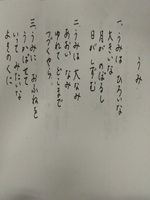 うみ
一、うみは ひろいな
大きいな
月が のぼるし
日が しずむ
二、うみは 大なみ
あおい なみ
ゆれて どこまで
つづくやら
三、うみに おふねを
うかばせて
いって みたいな
よその くに